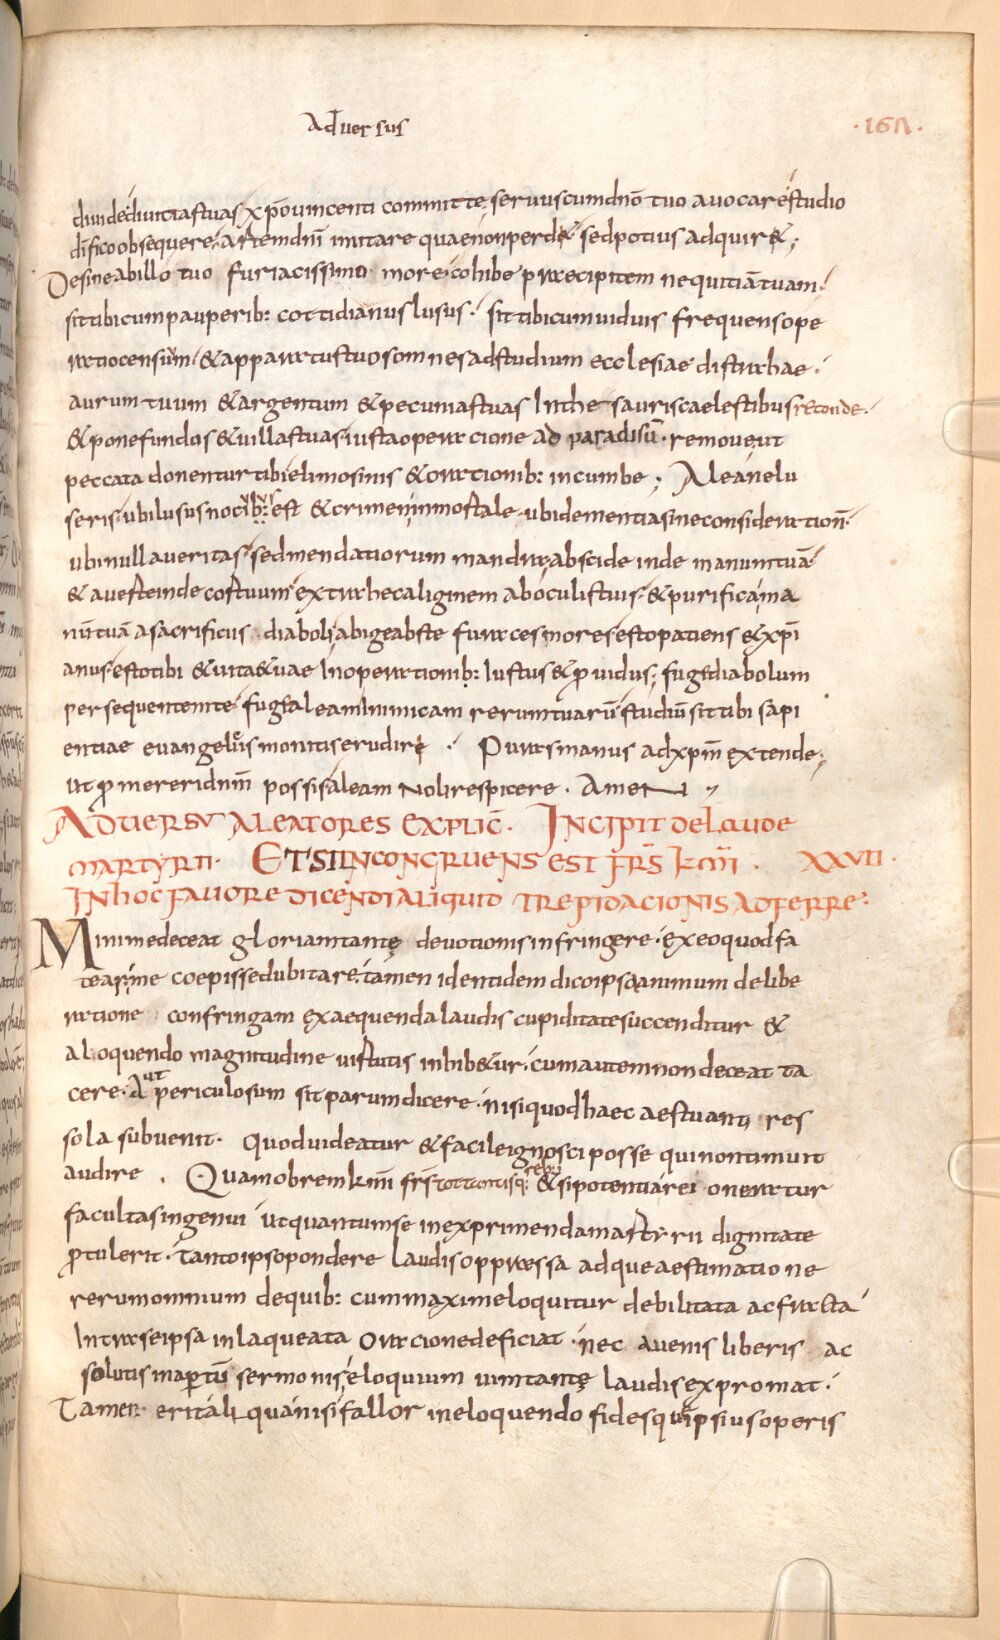 Adversus
·167·
diuide diuitias tuas xpo uincenti committe seruus cum dno tuo auocare studio
difico obsequere astem dni imitare quae non perdet sed potius adquiret;
Desine ab illo tuo furiacissimo more cohibe praecipitem nequitiā tuam
sit tibi cum pauperib: cottidianus lusus. sit tibi cum uiduis frequens ope
ratio censum & apparatus tuos omnes ad studium ecclesiae distrahae.
aurum tuum & argentum & pecunias tuas In thesauris caelestibus reconde.
& pone fundos & uillas tuas iusta operacione ad paradisū. removeut
peccata donentur tibi elimosinis & orationib: incumbe; Aleam elu
seris ubi lusus nocib: est & crimen inmortale. ubi dementia sine consideration
ubi nulla ueritas sed mendatiorum mandra abscide inde manum tuā
& auerte inde cor tuum extrahe caliginem ab oculis tuis & purifica ma
num tuā a sacrificiis diaboli abige abs te furaces mores esto patiens & xpi
anus esto tibi & uita & uae In operationib: Iustus & prouidus; fuge diabolum
persequentem te fuge aleam Inimicam rerum tuarū studiū sit tibi sapi
entiae euangeliis monitis erudire. Puras manus ad xpm extende;
ut promereri dnm possis aleam noli respicere. Amen
Adversu aleatores explic. Incipit de laude
martyrii. Et si incongruens est frs kmi. XXVII.
In hoc favore dicendi aliquid trepidacionis adferre:
Minime deceat gloriam tantę devotionis infringere. ex eo quod fa
tear me coepisse dubitare. tamen identidem dico ipsa animum delibe
ratione confringam exaequenda laudis cupiditate succenditur &
aloquendo magnitudine uirtutis inhibetur. cum autem non deceat ta
cere. Aut periculosum sit parum dicere. nisi quod haec aestuanti res
sola subuenit. Quod uideatur & facile ignosci posse qui non timuit
audire. Quamobrem kmi frs tot tantisq: rebus & si potentia rei oneratur
facultas ingenii ut quantum se in exprimenda martyrii dignitate
protulerit. tanto ipso pondere laudis oppraessa adque aestimatione
rerum omnium de quib: cum maxime loquitur debilitata ac fracta
Intra se ipsa inlaqueata oracione deficiat. nec auenis liberis ac
solutis in apertū sermonis eloquium uim tantę laudis expromat.
Tamen erit aliqua nisi fallor in eloquendo fides qui ipsius operis